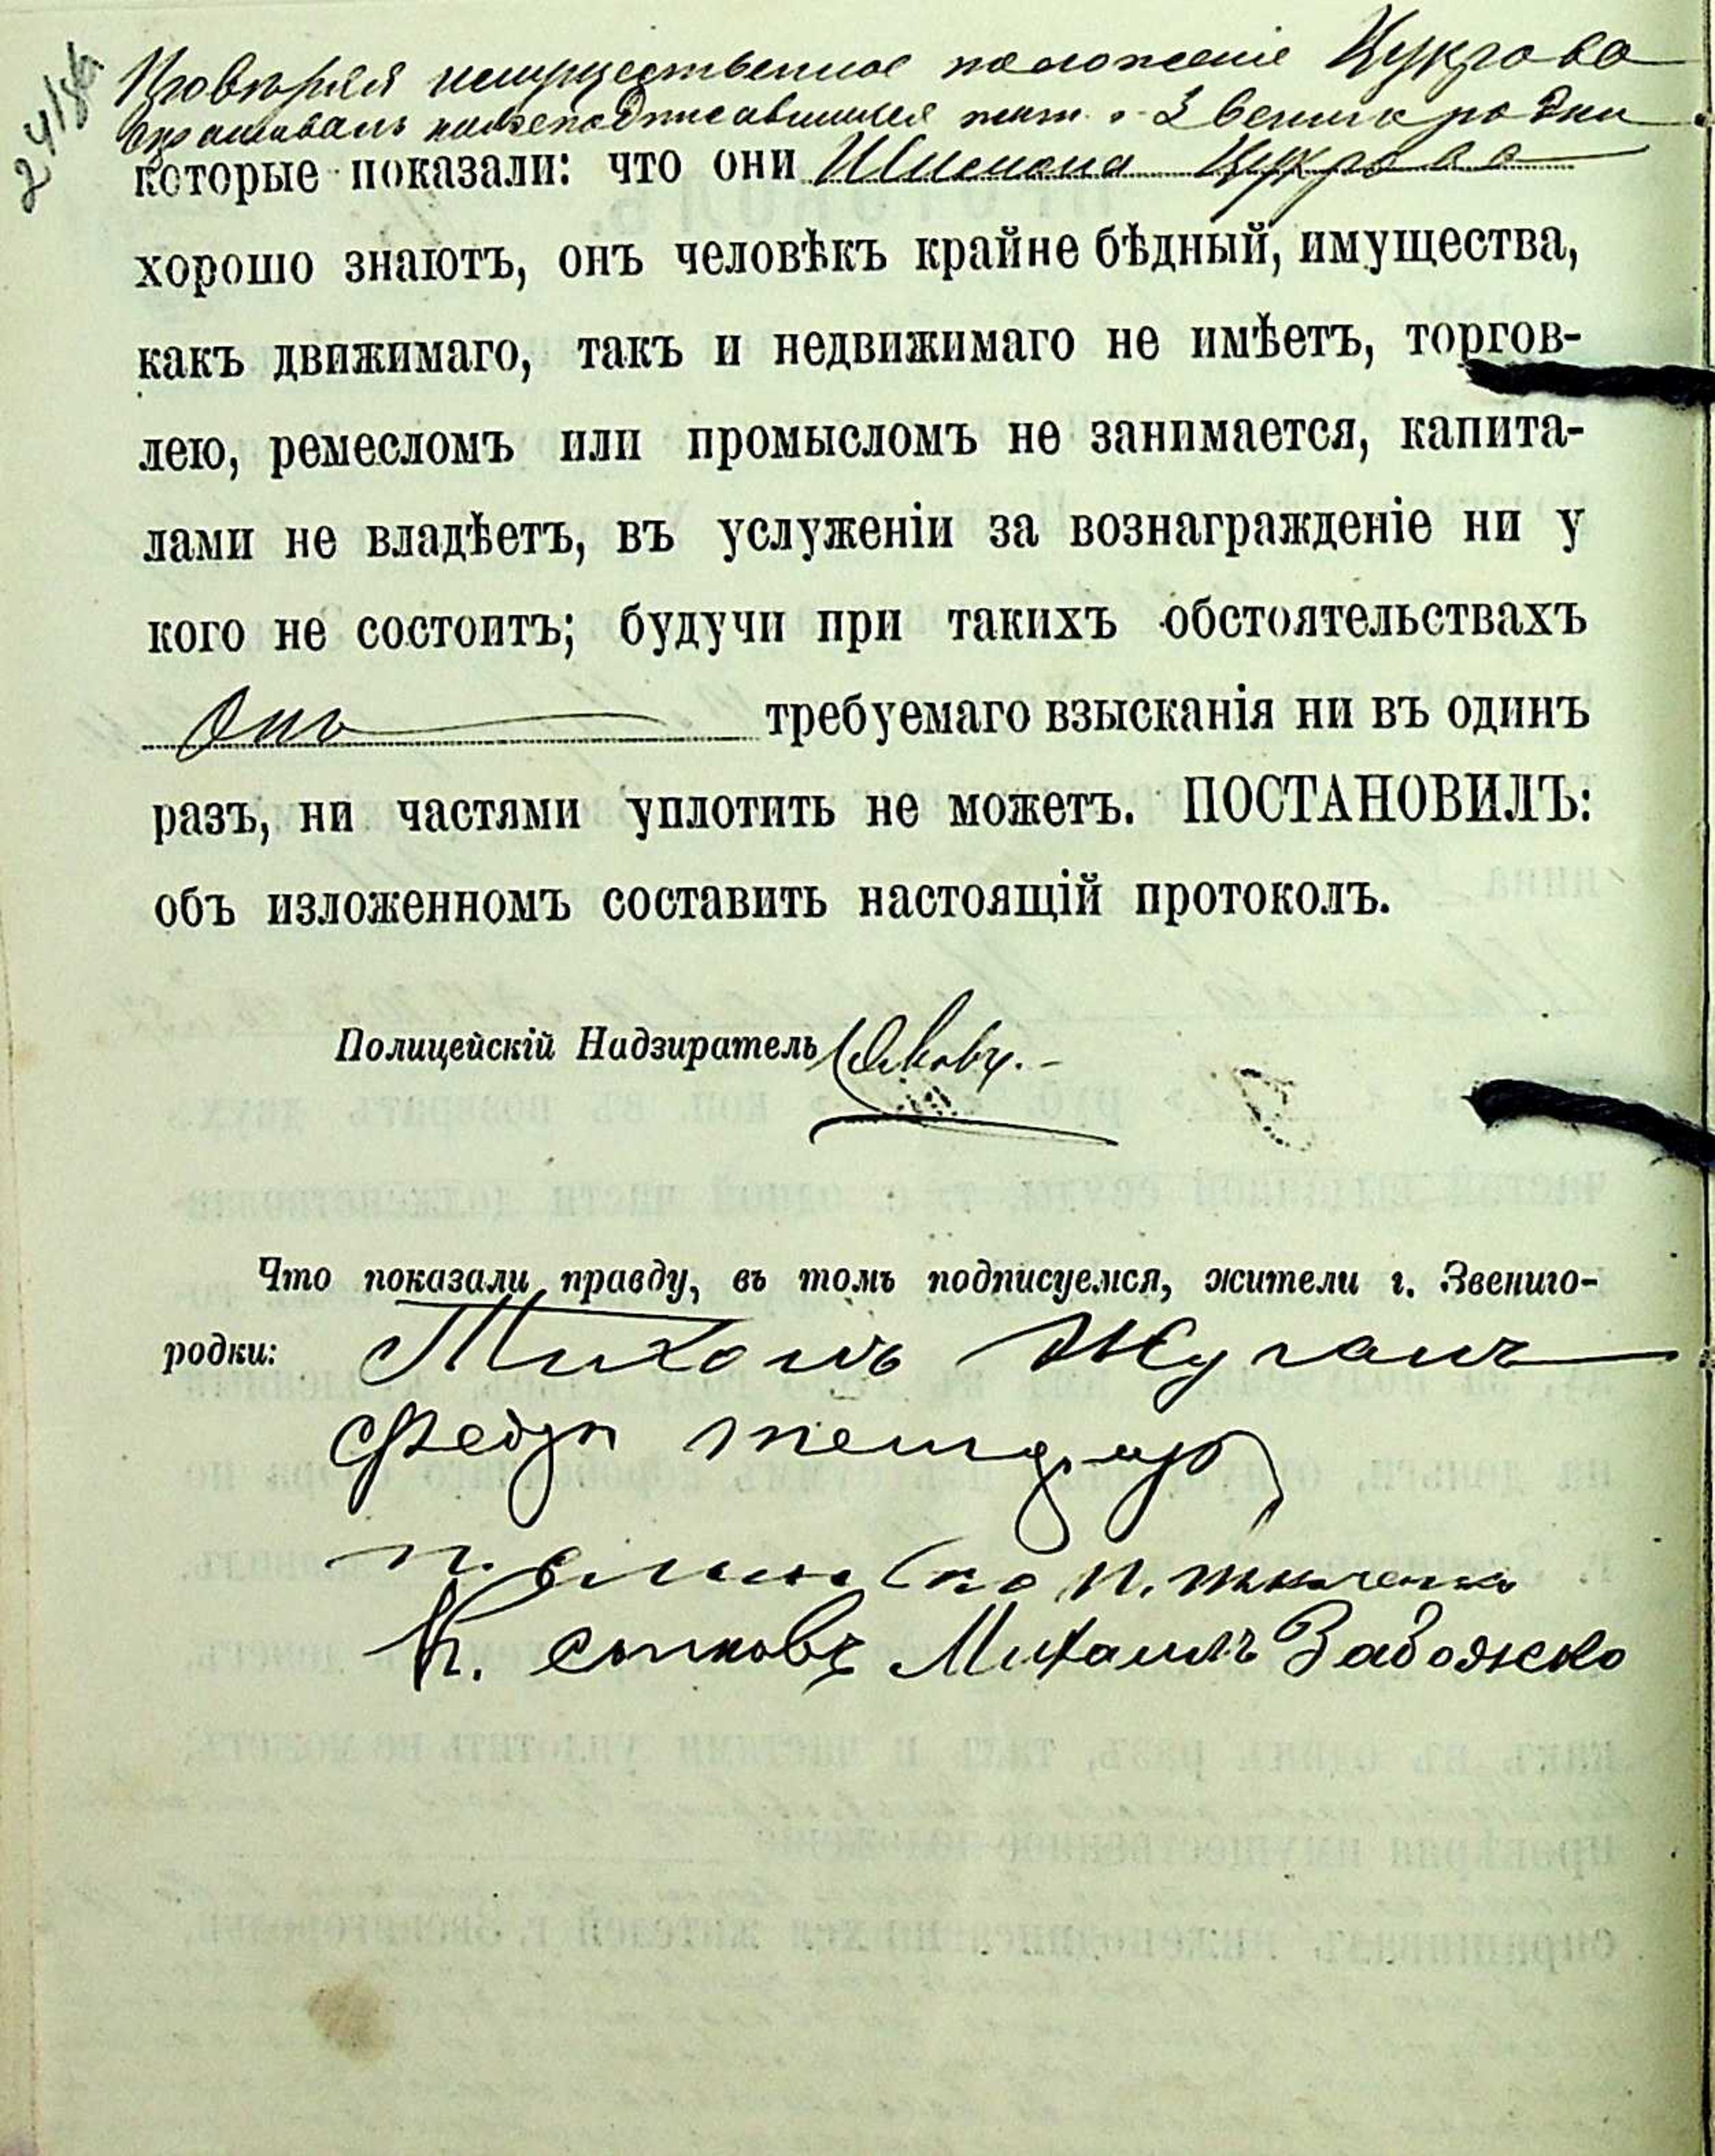 Провѣряя имущественное положеніе Цукрова
спрашивалъ нижеподписавшихся жит. г. Звенигородки
которые показали: что они Шимона Цукрова
хорошо знаютъ, онъ человѣкъ крайне бѣдный, имущества,
какъ движимаго, такъ и недвижимаго не имѣетъ, торгов-
лею, ремесломъ или промысломъ не занимается, капита-
лами не владѣетъ, въ услуженіи за вознагражденіе ни у
кого не состоитъ; будучи при такихъ обстоятельствахъ
Онъ требуемаго взысканія ни въ одинъ
разъ, ни частями уплотить не можетъ. ПОСТАНОВИЛЪ:
объ изложенномъ составить настоящій протоколъ.
Полицейскій Надзиратель
Что показали правду, въ томъ подписуемся, жители г. Звениго-
родки: Тихонъ Жуганъ
Федр
П. П. Ткаченко
К. Сычковъ Михаилъ Забожко